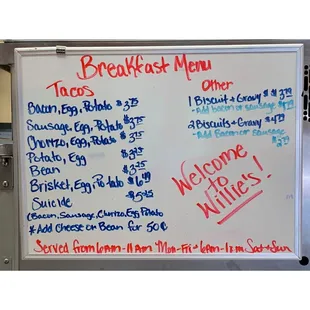 Breakfast Menu
Tacos
Bacon, Egg, Potato $3.75
Sausage, Egg, Potato $3.75
Chorizo, Egg, Potato $3.75
Potato, Egg
Bean $3.25
Brisket, Egg, Potato $6.49
Suicide
(Bacon, Sausage, Chorizo, Egg, Potato
* Add Cheese or Bean for 50¢
Other
1 Biscuit + Gravy
- Add Bacon or Sausage
2 Biscuits + Gravy
- Add Bacon or Sausage
Welcome
to
Willie's!
Served from 6AM-11AM Mon-Fri - 6AM-12PM Sat + Sun